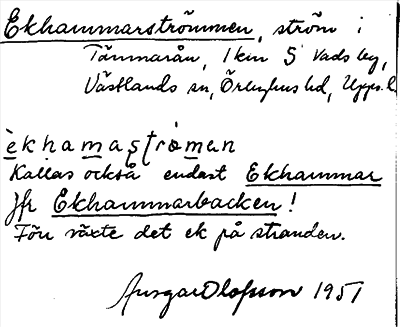 Ekhammarströmmen, ström i
Tämnarån, 1 km S Vads by,
Västlands sn, Örbyhus hd, Upps. l.
èkhamaströmen
Kallas också endast Ekhammar
Jfr Ekhammarbacken!
Förr växte det ek på stranden.
Ansgar Olofsson 1951